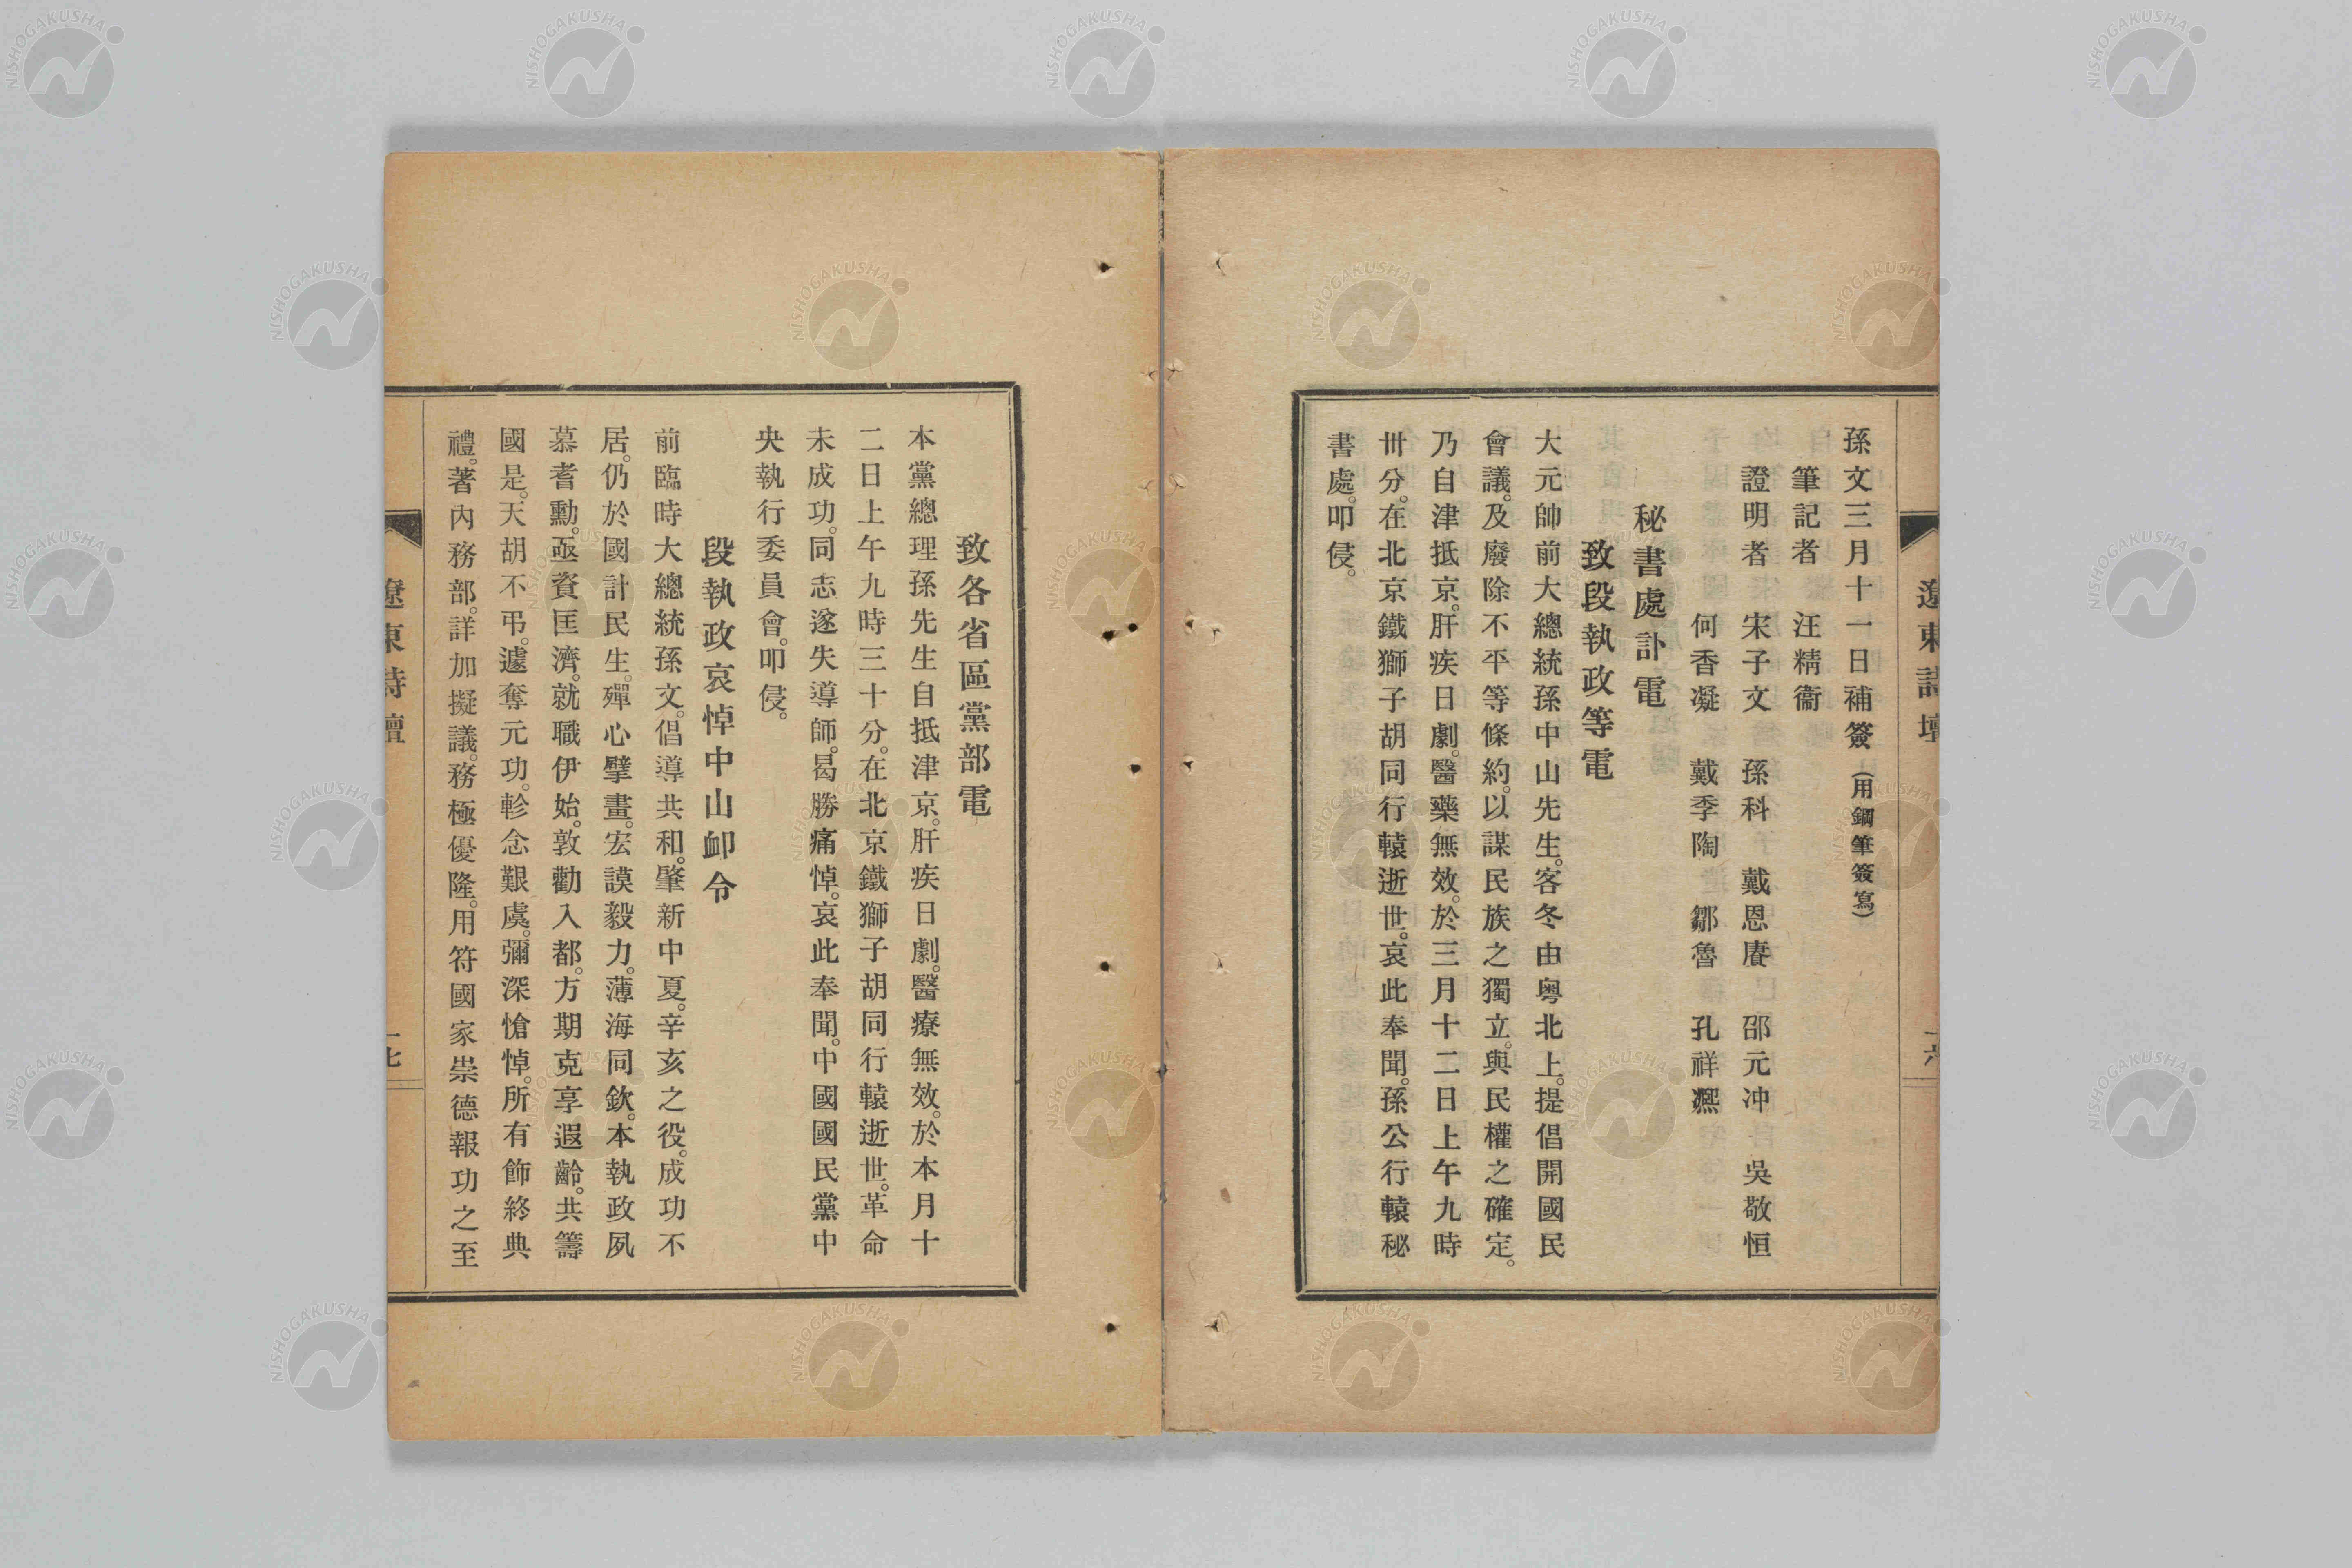 孫文三月十一日補簽（用鋼筆簽寫）
筆記者　汪精衞
證明者　宋子文　孫科　戴恩賡　邵元冲　吳敬恒
何香凝　戴季陶　鄒魯　孔祥熈
秘書處訃電
致段執政等電
大元帥前大總統孫中山先生。客冬由粤北上。提倡開國民
會議。及廢除不平等條約。以謀民族之獨立。與民權之確定。
乃自津抵京。肝疾日劇。醫藥無效。於三月十二日上午九時
卅分。在北京鐵獅子胡同行轅逝世。哀此奉聞。孫公行轅秘
書處。叩侵。
致各省區黨部電
本黨總理孫先生自抵津京。肝疾日劇。醫療無效。於本月十
二日上午九時三十分。在北京鐵獅子胡同行轅逝世。革命
未成功。同志遂失導師。曷勝痛悼。哀此奉聞。中國國民黨中
央執行委員會。叩侵。
段執政哀悼中山卹令
前臨時大總統孫文。倡導共和。肇新中夏。辛亥之役。成功不
居。仍於國計民生。殫心擘畫。宏謨毅力。薄海同欽。本執政夙
慕耆勳。亟資匡濟。就職伊始。敦勸入都。方期克享遐齡。共籌
國是。天胡不弔。遽奪元功。軫念艱虞。彌深愴悼。所有飾終典
禮。著內務部。詳加擬議。務極優隆。用符國家崇德報功之至
遼東詩壇
一六
遼東詩壇
一七
NISHOGAKUSHA